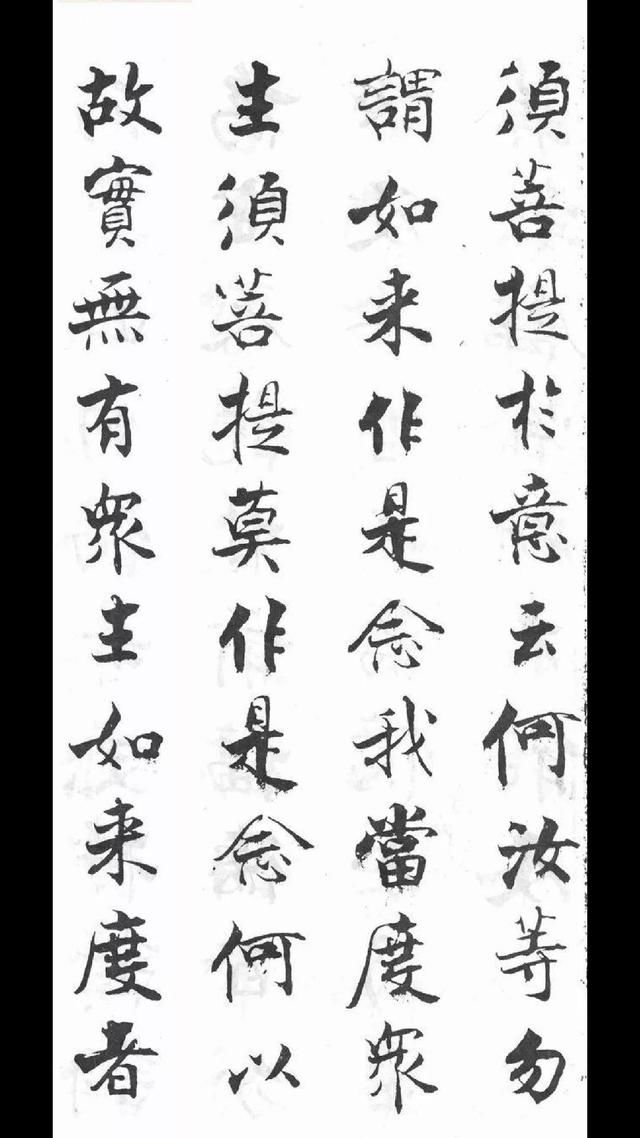 須菩提於意云何汝等勿
謂如来作是念我當度衆
生須菩提莫作是念何以
故實無有衆生如来度者